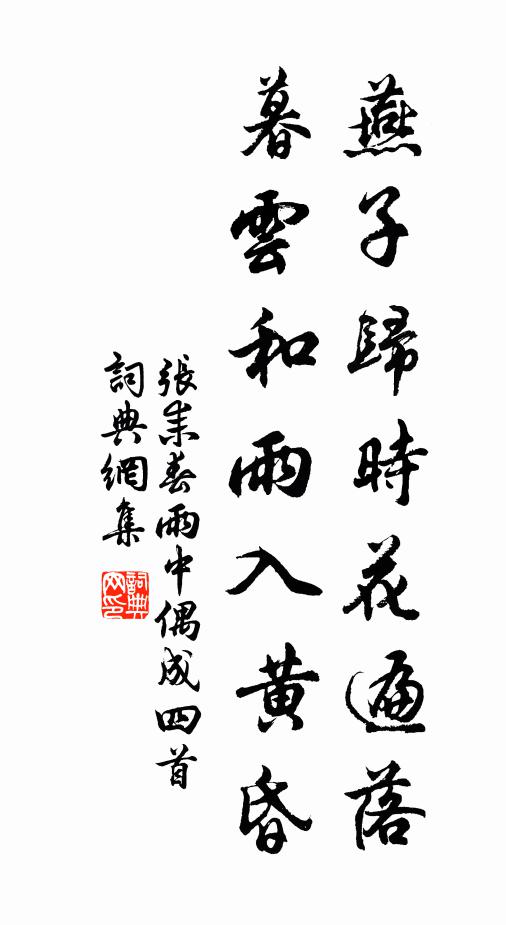 燕子歸時花遍落
暮雲和雨入黃昏
張耒春雨中偶成四首
詞典網集
詞典網印